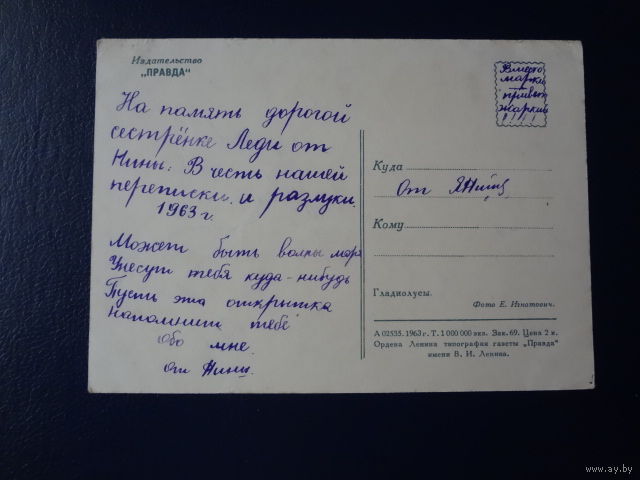 Издательство
„ПРАВДА“
На память дорогой
сестрёнке Леди от
Нины. В честь нашей
переписки и разлуки.
1963 г.
Может быть волны моря
Унесут тебя куда-нибудь
Пусть эта открытка
напомнит тебе
обо мне.
от Нины.
Вместо
марки
привет
жаркий
!!!!
Куда
От
Кому
Гладиолусы.
Фото Е. Игнатович.
А 02535. 1963 г. Т. 1 000 000 экз. Зак. 69. Цена 2 к.
Ордена Ленина типография газеты „Правда“
имени В. И. Ленина.
https://ay.by